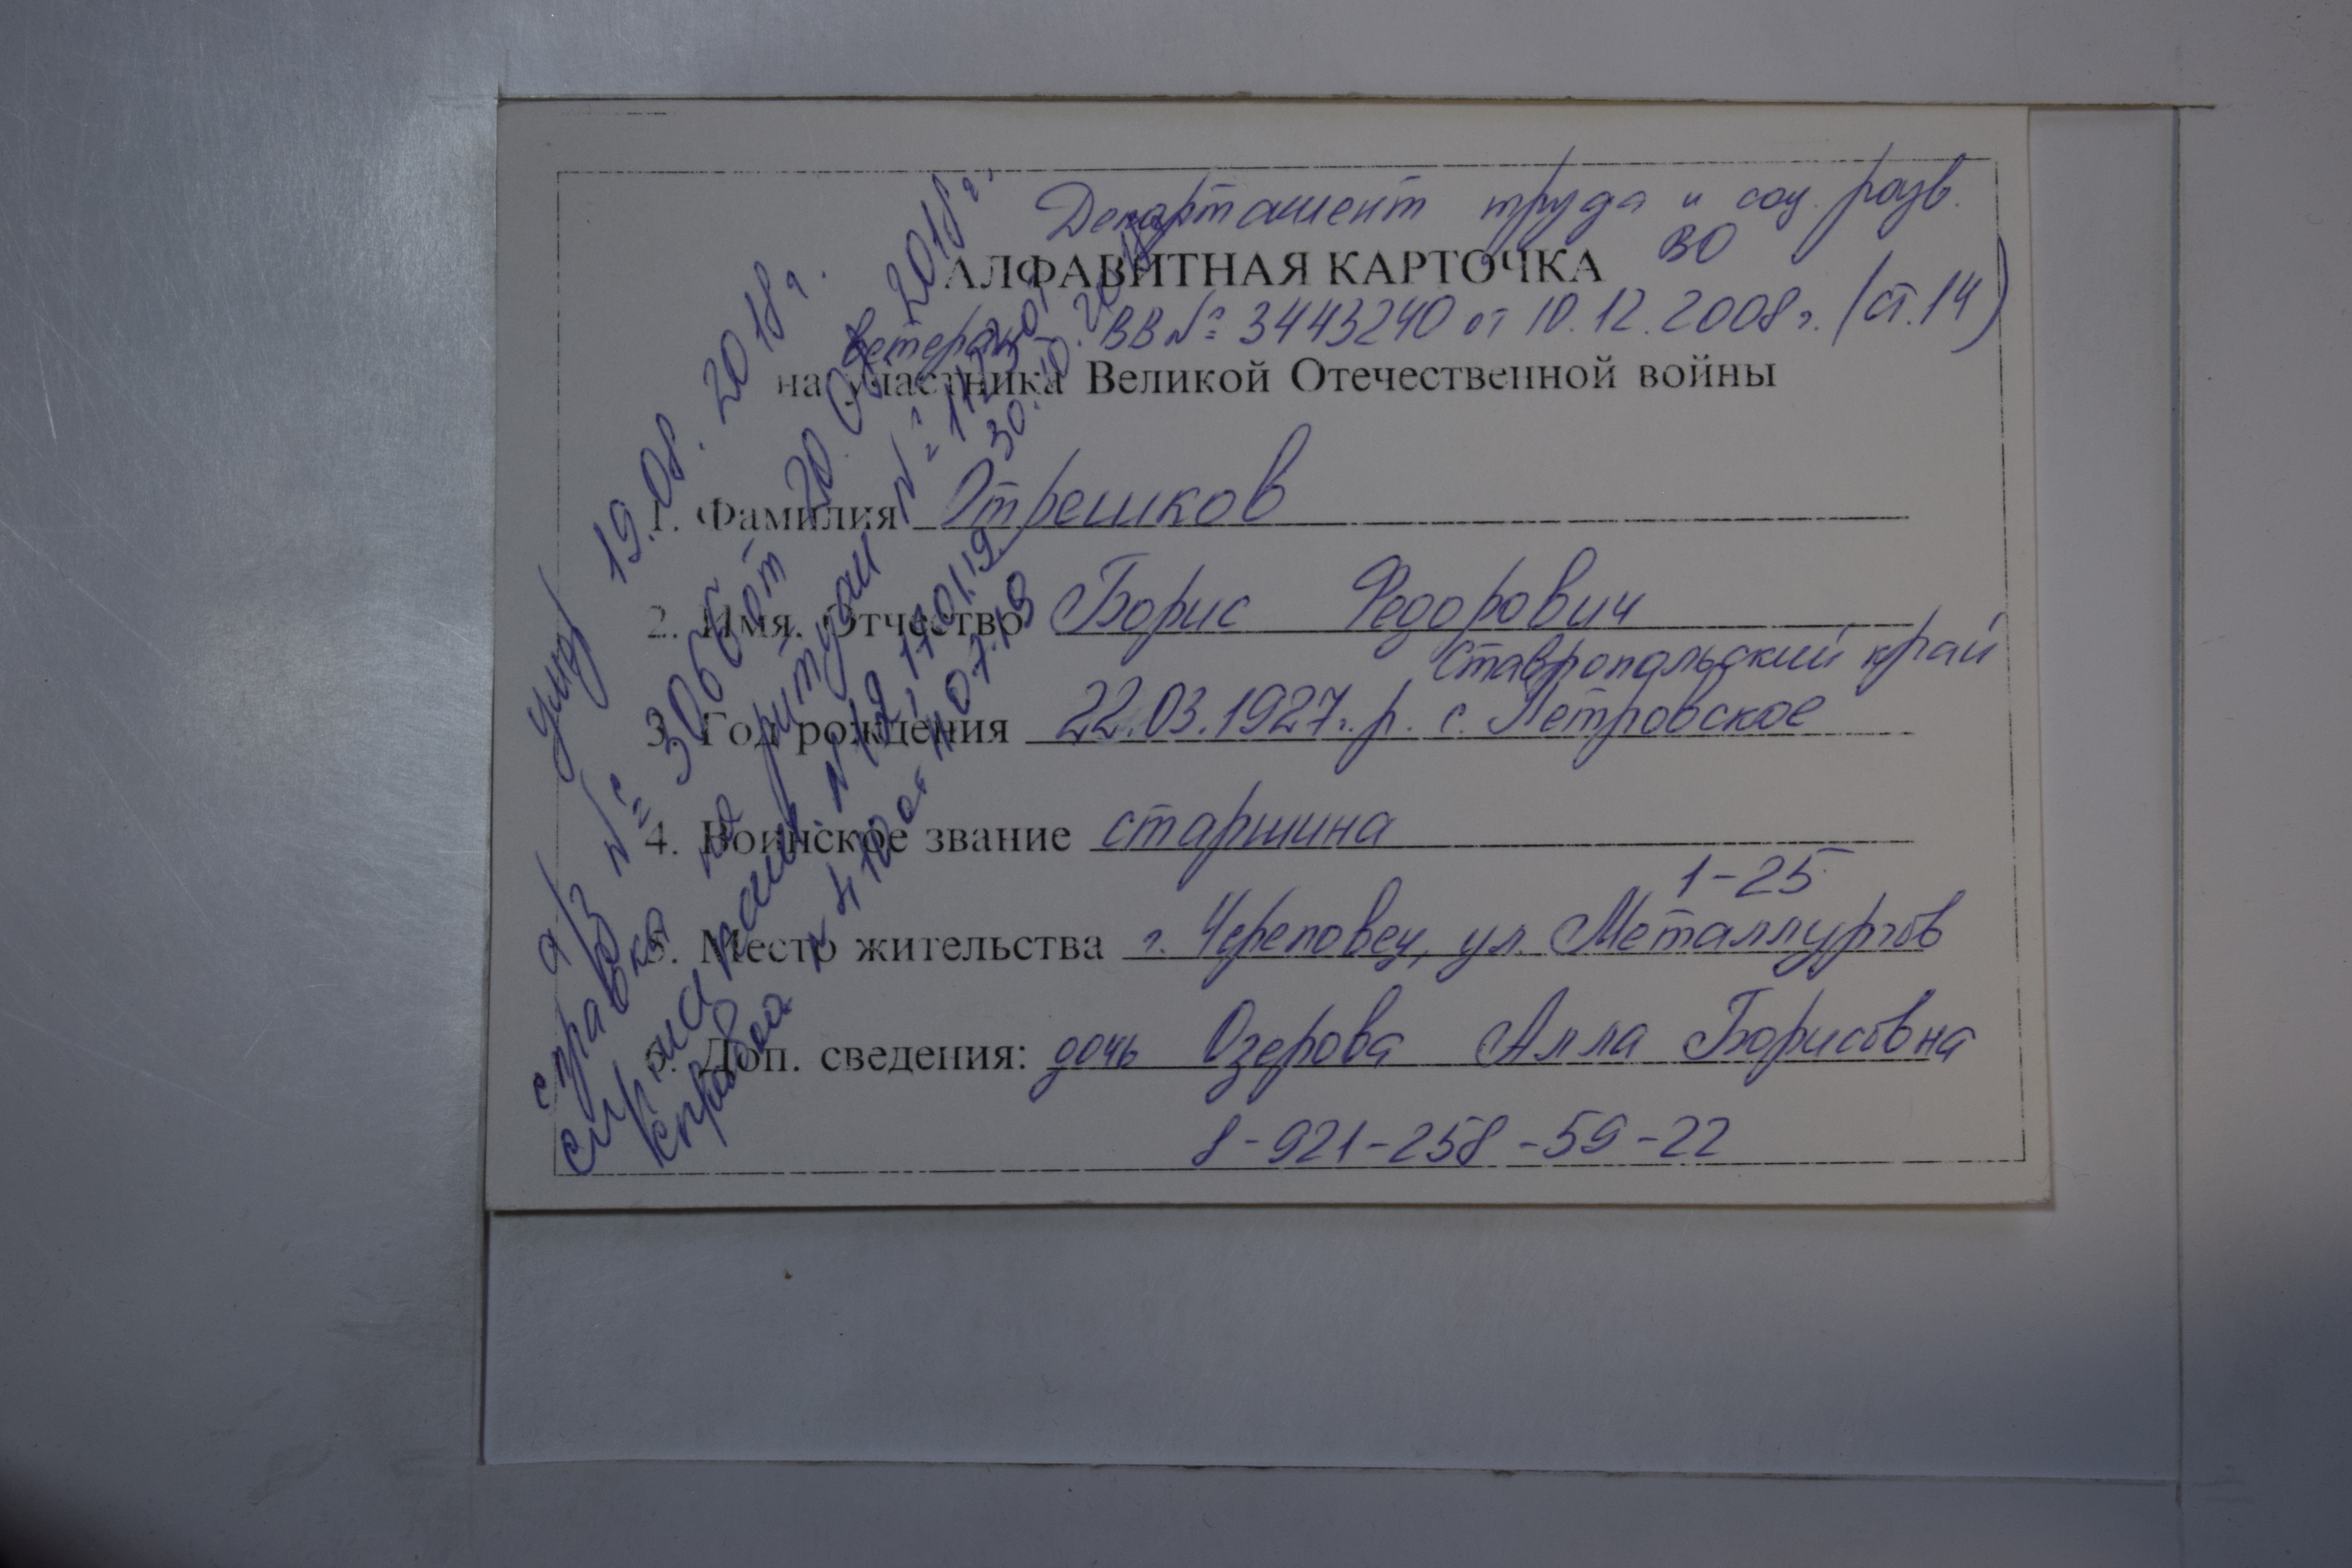 Департамент труда и соц. разв.
ВО
АЛФАВИТНАЯ КАРТОЧКА
Ветеран ВВ № 3443240 от 10.12.2008 г. (ст. 14)
на участника Великой Отечественной войны
1. Фамилия Отрешков
2. Имя. Отчество Борис Федорович
Ставропольский край
3. Год рождения 22.03.1927 г. р. с. Петровское
4. Воинское звание старшина
1-25
5. Место жительства г. Череповец, ул. Металлургов
6. Доп. сведения: дочь Озерова Алла Борисовна
8-921-258-59-22
умер 19.08.2018 г.
а/з № 3066 от 20.08.2018 г.
справка на ритуал №
30.10.
на памят. № 12, 17.01.19
справка № 470 от 11.07.19